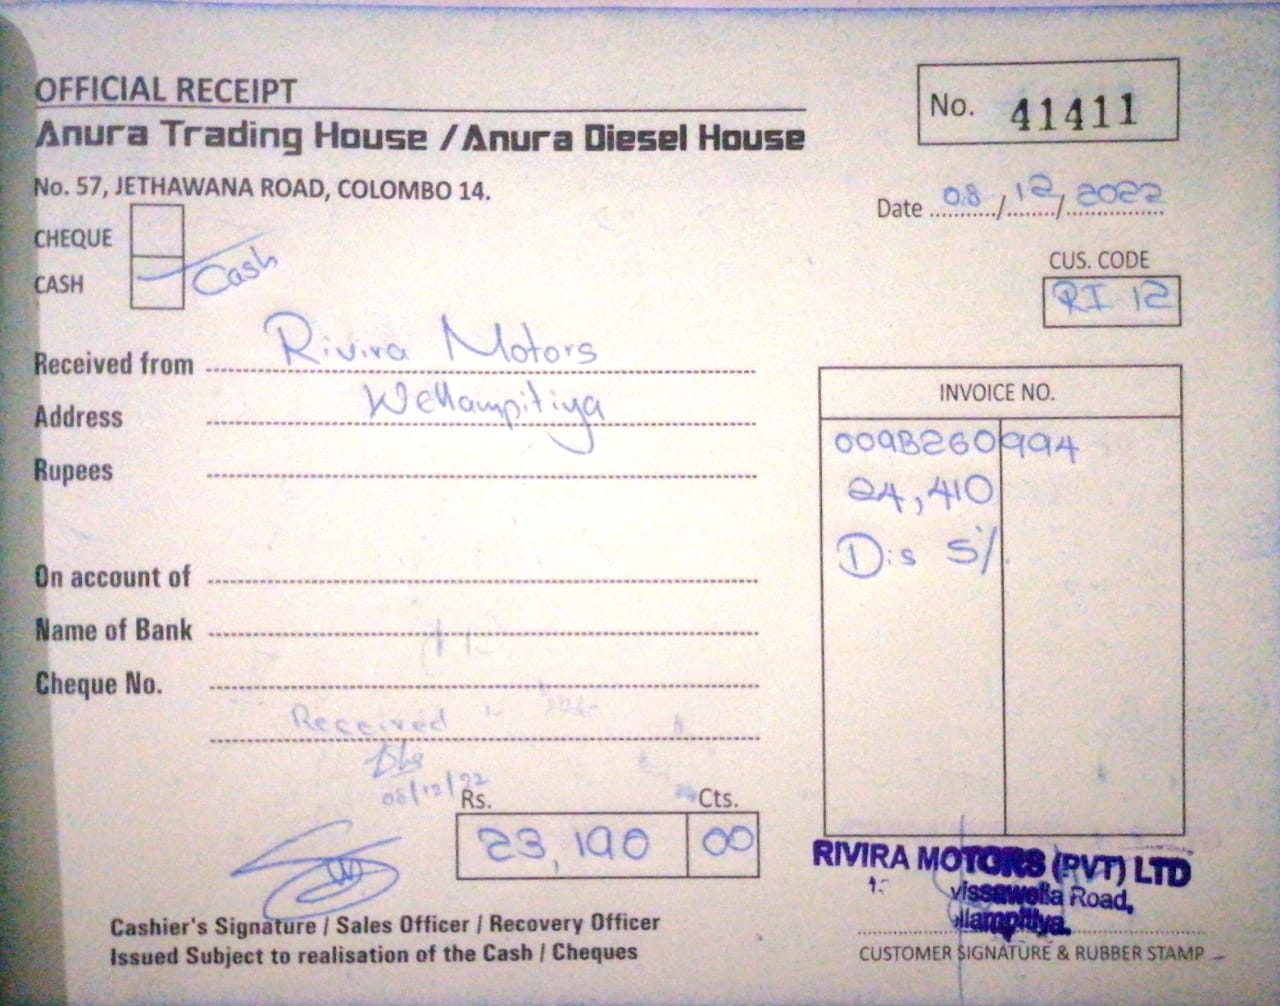 OFFICIAL RECEIPT
Anura Trading House / Anura Diesel House
No. 57, JETHAWANA ROAD, COLOMBO 14.
No. 41411
Date 08/12/2022
CHEQUE
CASH
Cash
CUS. CODE
RI 12
Received from Rivira Motors
Address Wellampitiya
Rupees
INVOICE NO.
009B260994
24,410
Dis 5%
On account of
Name of Bank
Cheque No.
Received
08/12/22
Rs. Cts.
23,190 00
RIVIRA MOTORS (PVT) LTD
vissawella Road,
llampitiya.
Cashier's Signature / Sales Officer / Recovery Officer
Issued Subject to realisation of the Cash / Cheques
CUSTOMER SIGNATURE & RUBBER STAMP